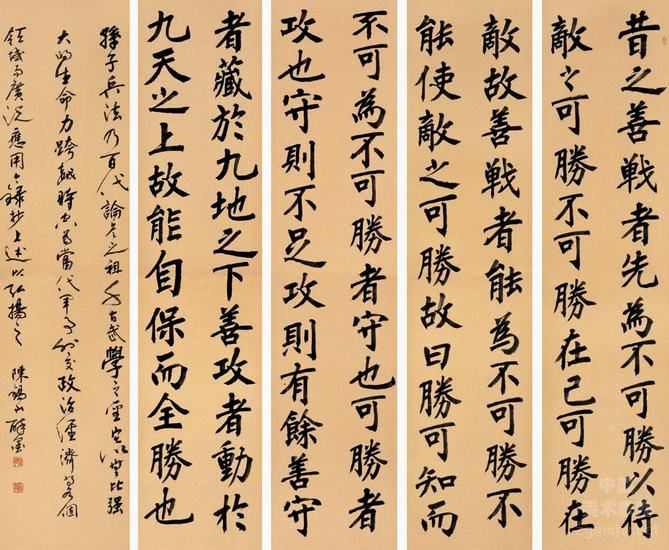 昔之善戦者先為不可勝以待
敵之可勝不可勝在己可勝在
敵故善戦者能為不可勝不
能使敵之可勝故曰勝可知而
不可為不可勝者守也可勝者
攻也守則不足攻則有餘善守
者藏於九地之下善攻者動於
九天之上故能自保而全勝也
孫子兵法乃百代論兵之祖千古武學之聖以比强
大的生命力跨越時空為當代軍事外交政治經濟等各個
領域而廣泛應用今錄抄上述以弘揚之 陳錫山